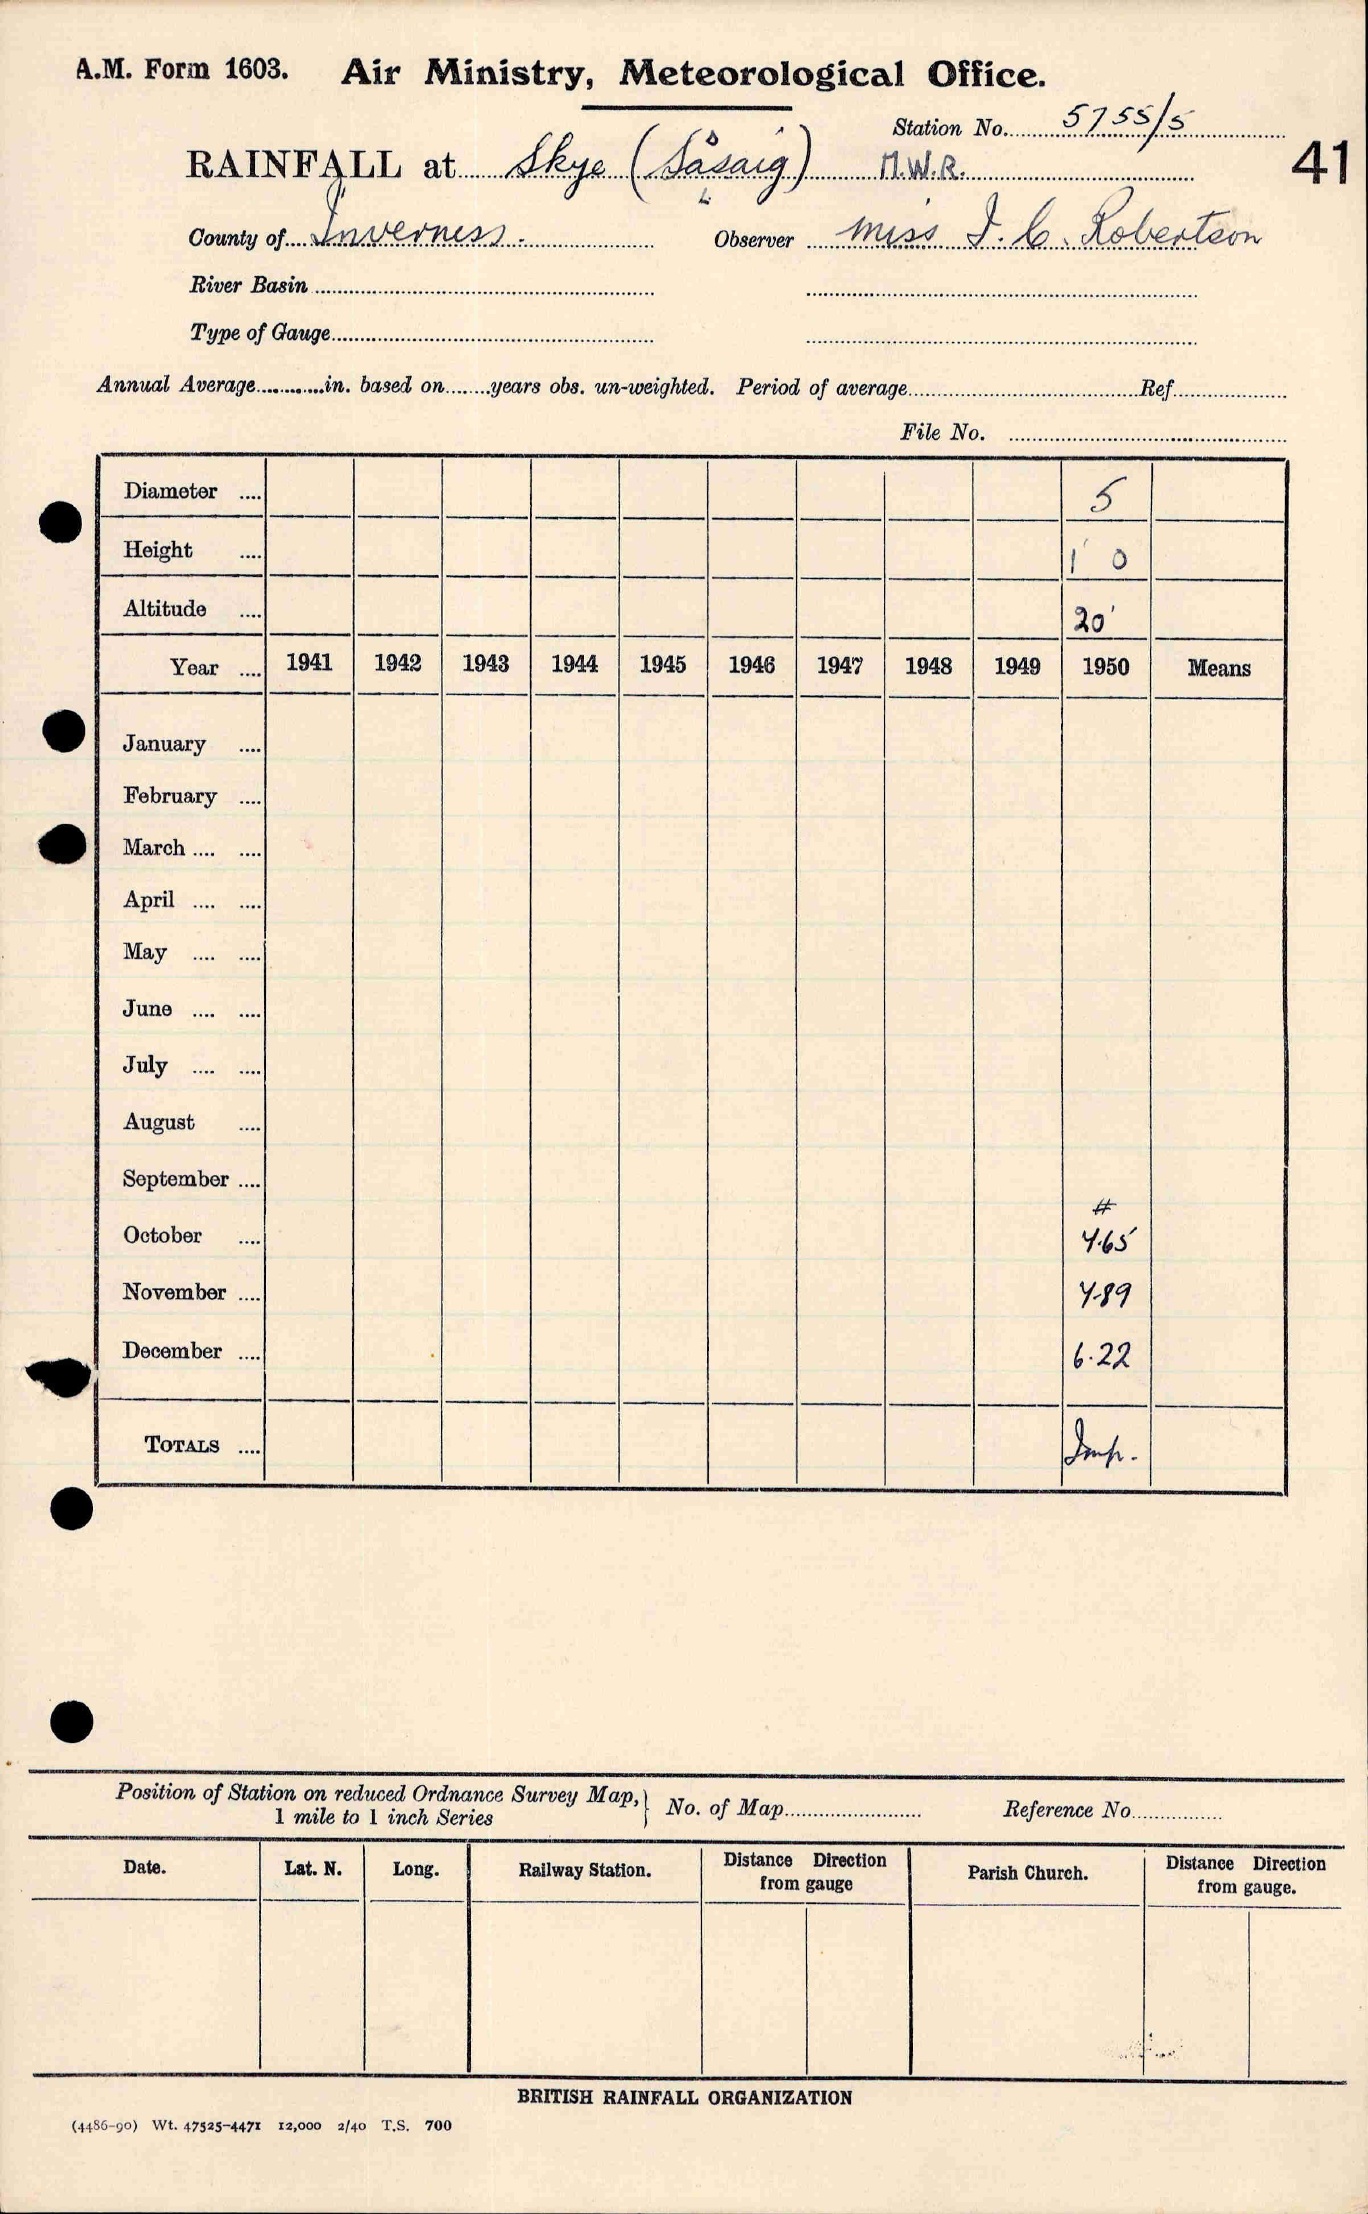 A.M. Form 1603. Air Ministry, Meteorological Office.
Station No. 5755/5
RAINFALL at Skye (Sasaig) M.W.R.
41
County of Inverness. Observer Miss I. C. Robertson
River Basin
Type of Gauge
Annual Average in. based on years obs. un-weighted. Period of average Ref
File No.
Diameter 5
Height 1' 0
Altitude 20'
Year 1941 1942 1943 1944 1945 1946 1947 1948 1949 1950 Means
January
February
March
April
May
June
July
August
September
#
October 7.65
November 7.89
December 6.22
TOTALS Imp.
Position of Station on reduced Ordnance Survey Map, } No. of Map Reference No
1 mile to 1 inch Series
Date. Lat. N. Long. Railway Station. Distance Direction from gauge Parish Church. Distance Direction from gauge.
BRITISH RAINFALL ORGANIZATION
(4486-90) Wt. 47525-4471 12,000 2/40 T.S. 700